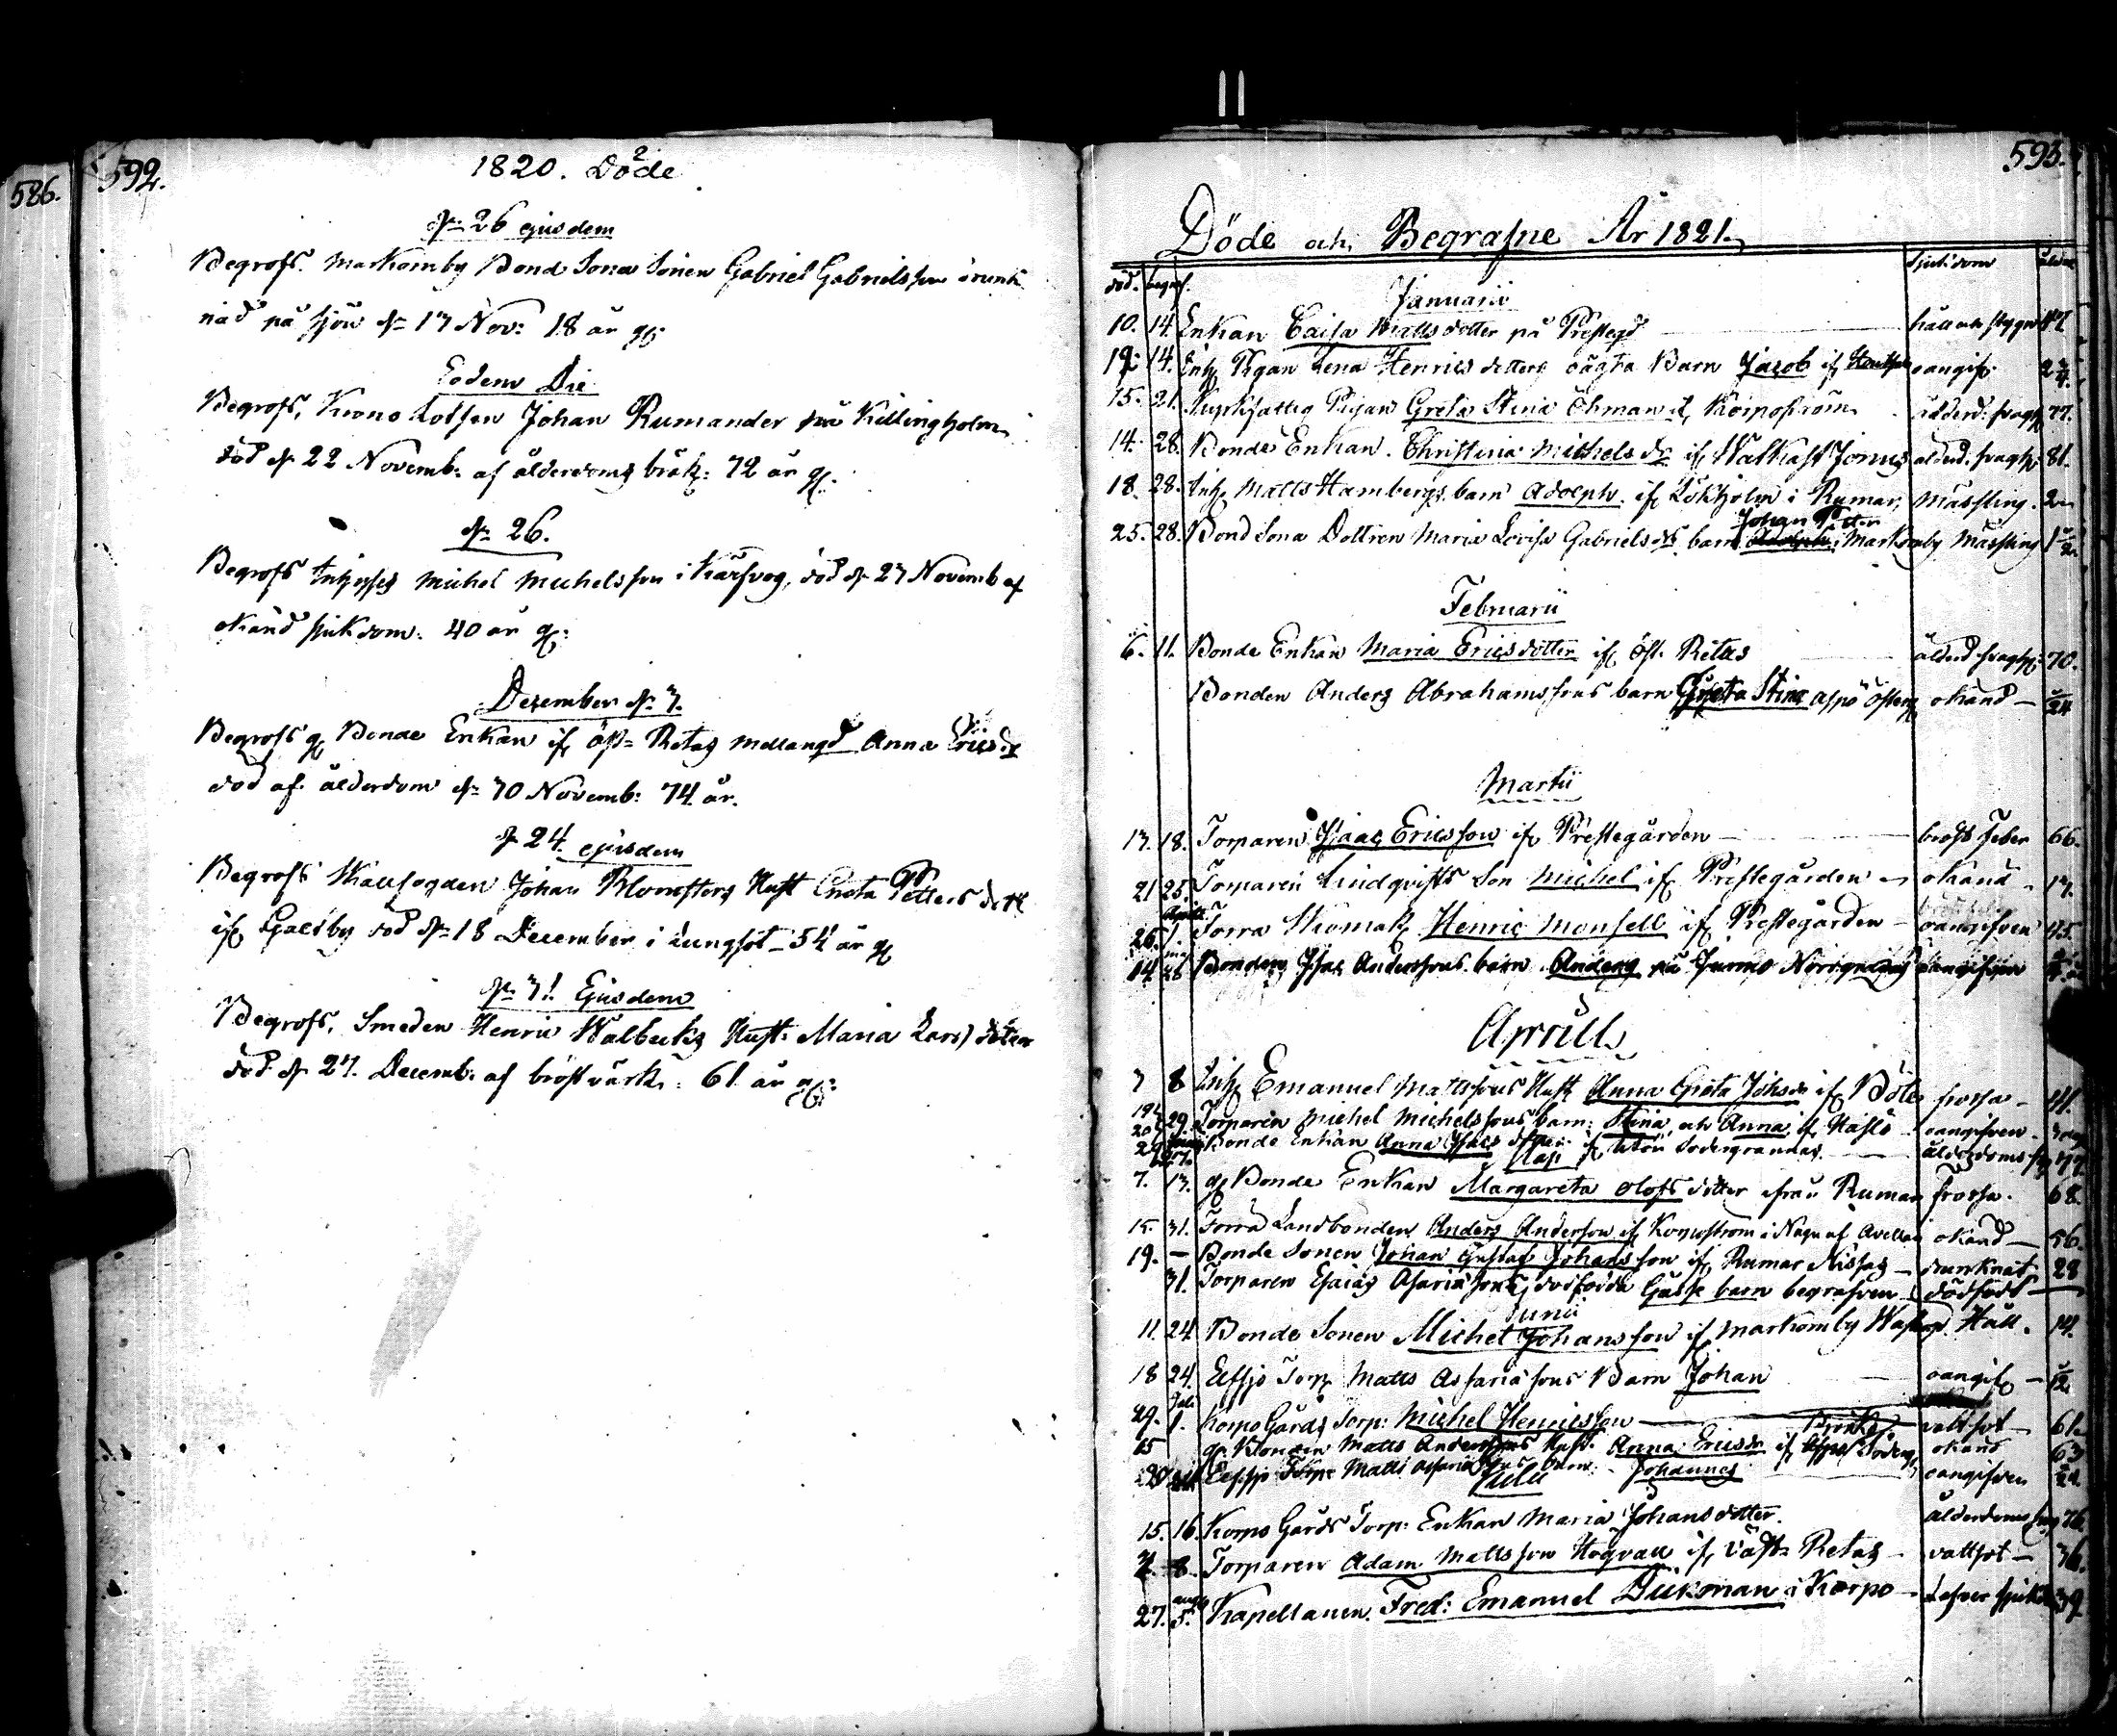 586.
592.
1820. Döde
26 ejusdem
Begrofs. Markomby Bond Sona Sonen Gabriel Gabrielsson drunk
nad på sjön 17 Nov: 18 år
Eodem Die
Begrofs, Krono Lotsen Johan Rumander Killingholm
död 22 Novemb: af ålderdoms bräk: 72 år
26.
Begrofs Inhyses Michel Michelsson i Kärsvog, död 27 Novemb af
okänd sjukdom: 40 år
December 3.
Begrofs Bonde Enkan öst Retas mellangd Anna Erics dr
död af ålderdom 30 Novemb: 74 år.
24 ejusdem
Begrofs Johan Blomsters Hust Greta Petters dott
Galsby död 18 December i lungsot 54 år
31. Ejusdem
Begrofs, Smeden Henric Walbecks Hust: Maria Lars dotter
död 27. Decemb: af bröstvärk: 61 år
593.
Döde och Begrafne År 1821.
död. begrf. sjukdom ålder
Januarii
10. 14. Enkan Caisa Matts dotter på Prestegd håll och styng
14. Inh Pigan Lena Henrics dotters oägta Barn Jacob oangif.
15. 21. Pigan Greta Stina Öhman Korpoström ålderd. svagh 77.
14. 28. Bonde Enkan. Christina Michels dr Walkast Jonus ålderd. svagh 81.
18. 28. Inh Matts Hambergs barn Adolph Lökholm i Rumar, Mässling. 2
Johan Petter
25. 28. Bond Sona Dottren Maria Lovisa Gabriels dr barn Markomby Mässling
Februarii
6. 11. Bonde Enkan Maria Erics dotter öst. Retas ålderd svagh 70.
Bonden Anders Abrahamssons barn Greta Stina Aspö Österg okänd 24
Martii
13. 18. Torparen Isaac Ericsson Prestegården bröst feber 66.
21 25. Torparen Lindqvists Son Michel Prestegården okänd 17.
Aprill
26. 1. Torra Henric Monsell Prestegården oangifven 45.
14 28 Bonden Isac Anderssons barn Anders på Jurmo oangifven
Aprill
3 8 Inh Emanuel Mattssons Hust Anna Greta Johs dr frossa 41.
29. Torparen Michel Michelssons barn: Stina och Anna oangifven
Bonde Enkan Anna Isacs Södergrannas ålderdoms
Maji
7. 13. Bonde Enkan Margareta Olofs dotter ifrån Rumar frossa. 68.
15. 31. Torra Landbonden Anders Andersson Korpoström i Nagu af okänd 56.
19. — Bonde Sonen Johan Gustaf Johansson Rumar Nissas drunknat 28
31. Torparen Esaias Asariassons dödfödda barn begrafven dödfödt
Junii
11. 24 Bonde Sonen Michel Johansson Markomby Håll. 14.
18 24. Torp Matts Assariassons Barn Johan oangif
Juli
29. 1. Korpo Gårds Torp: Michel Henricsson vattsot 61.
15 Bonden Matts Anderssons Hust. Anna Erics dr okänd 63
20 Torp Matts Assariassons barn: Johannes oangifven
Julii
15. 16. Korpo Gårds Torp: Enkan Maria Johans dotter. ålderdoms 76.
8. Torparen Adam Mattsson Högvall Väst Retas vattsot 36.
aug
27. 5. Kapellanen Fred: Emanuel Dickman i Korpo Lefver sjukd 39